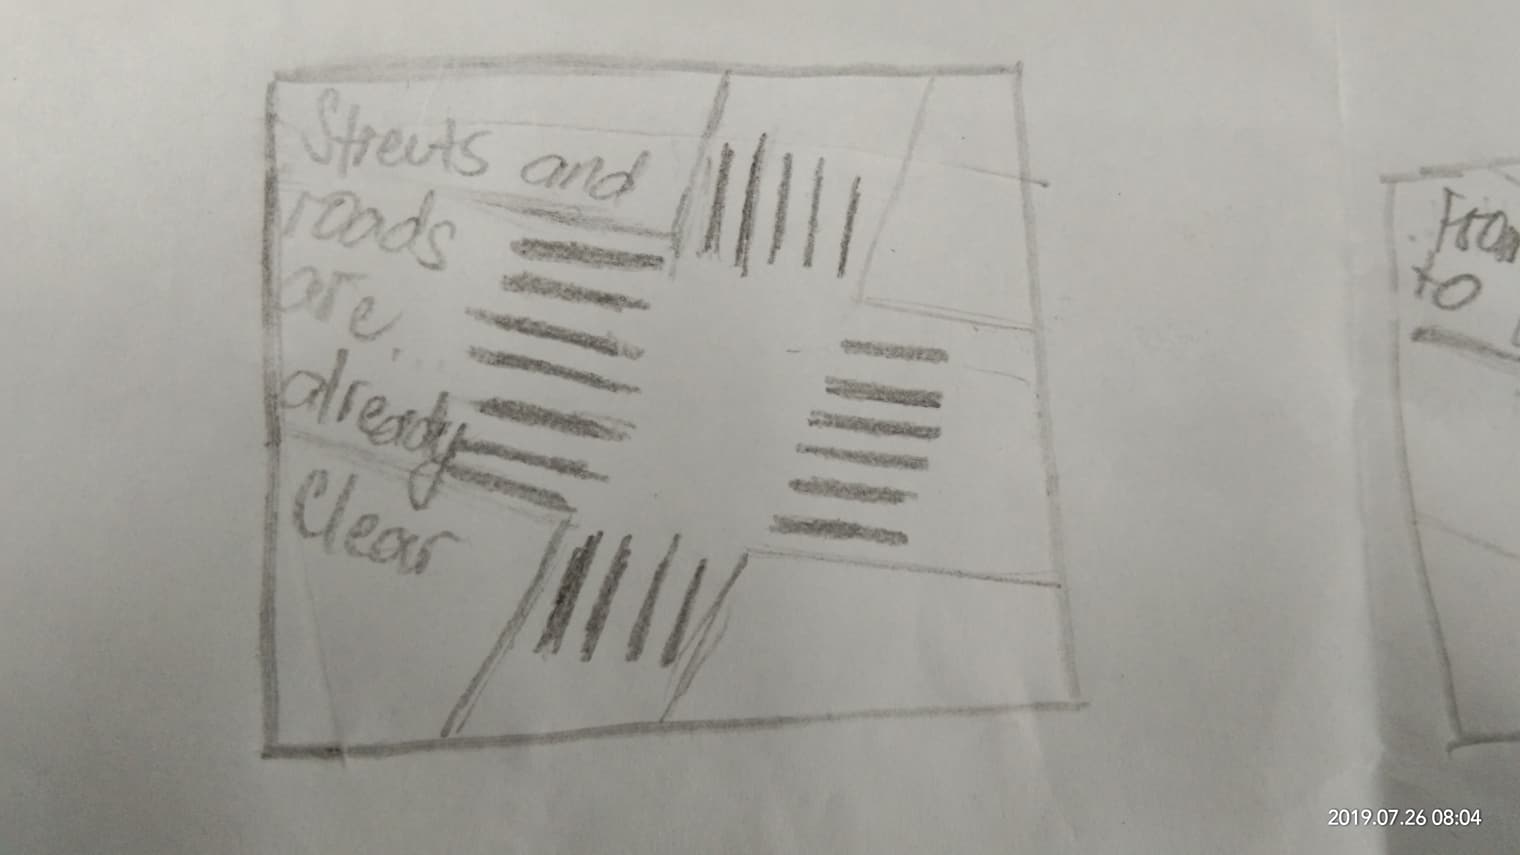 Streets and
roads
are...
already
Clear
to
2019.07.26 08:04